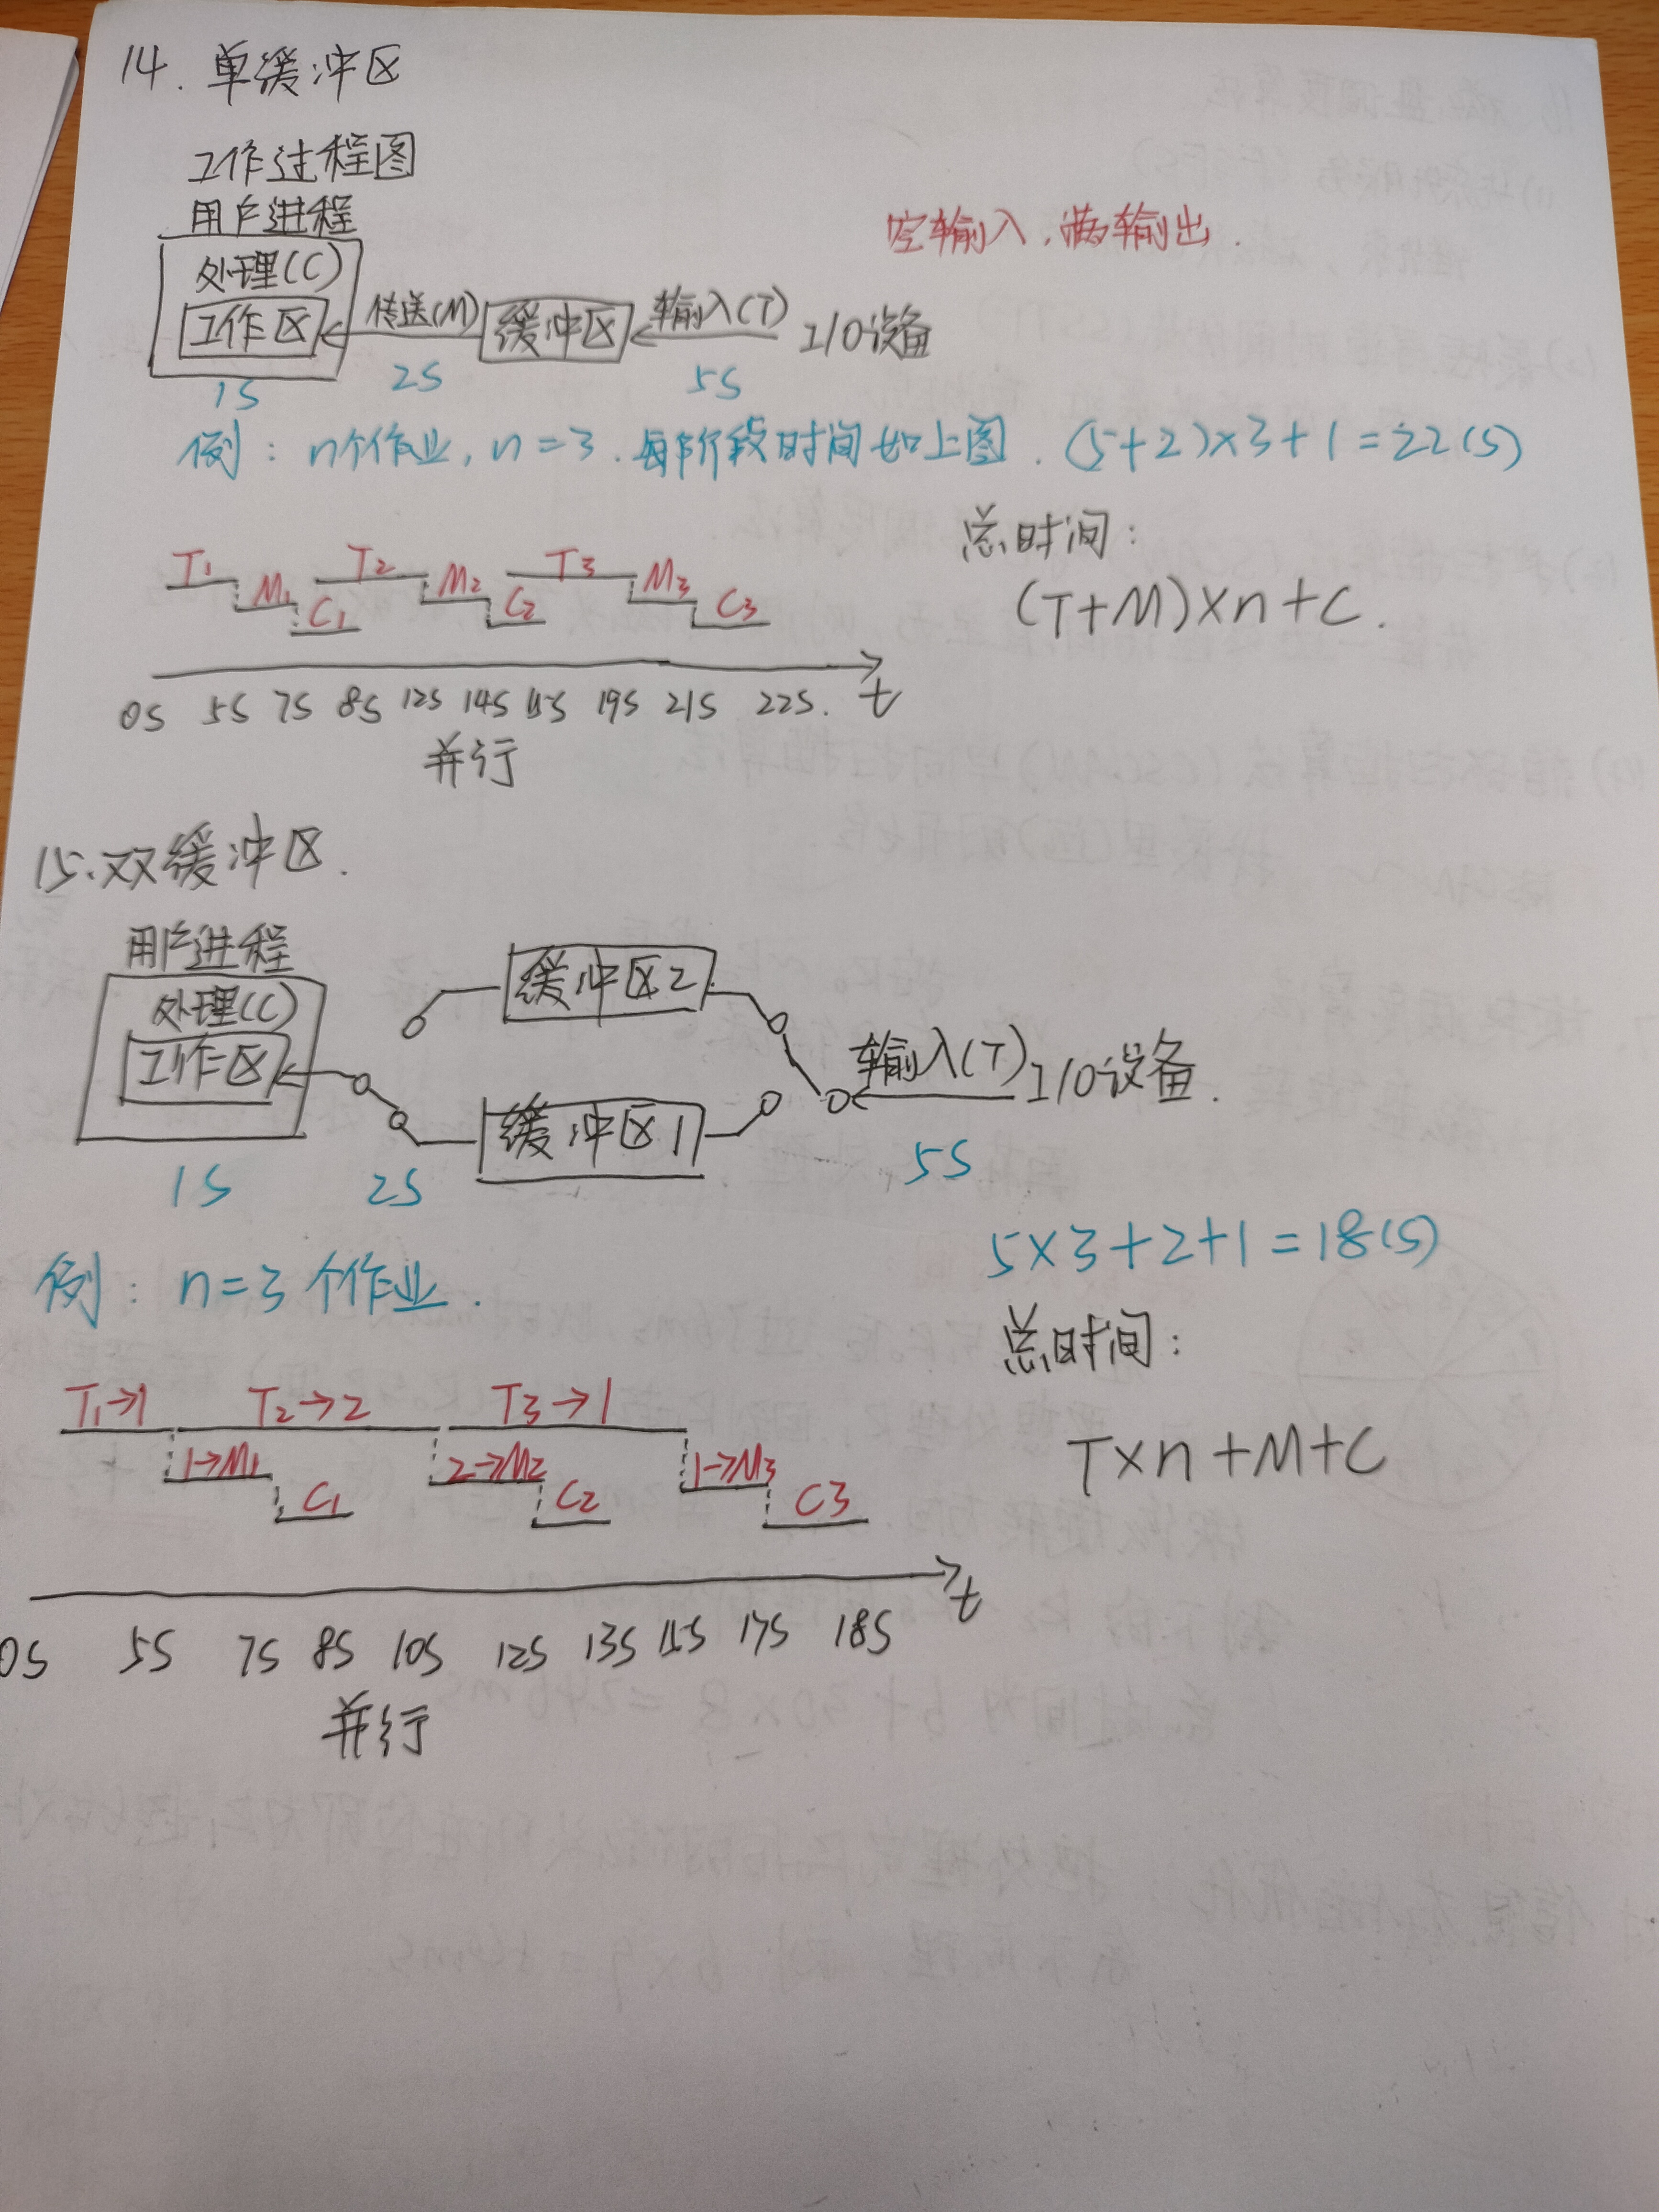 14. 单缓冲区
工作过程图
用户进程
空输入,满输出.
处理(C)
工作区
传送(M)
缓冲区
输入(T)
I/O设备
1S
2S
5S
例: n个作业, n=3. 每阶段时间如上图. (5+2)×3+1=22(S)
总时间:
(T+M)×n+C.
T1 M1 C1 T2 M2 C2 T3 M3 C3
0S 5S 7S 8S 12S 14S 15S 19S 21S 22S. t
并行
15.双缓冲区.
用户进程
处理(C)
工作区
缓冲区2
缓冲区1
输入(T)
I/O设备.
1S
2S
5S
5×3+2+1=18(S)
例: n=3个作业.
总时间:
T×n+M+C
T1→1 T2→2 T3→1
1→M1 2→M2 1→M3
C1 C2 C3
0S 5S 7S 8S 10S 12S 13S 15S 17S 18S t
并行